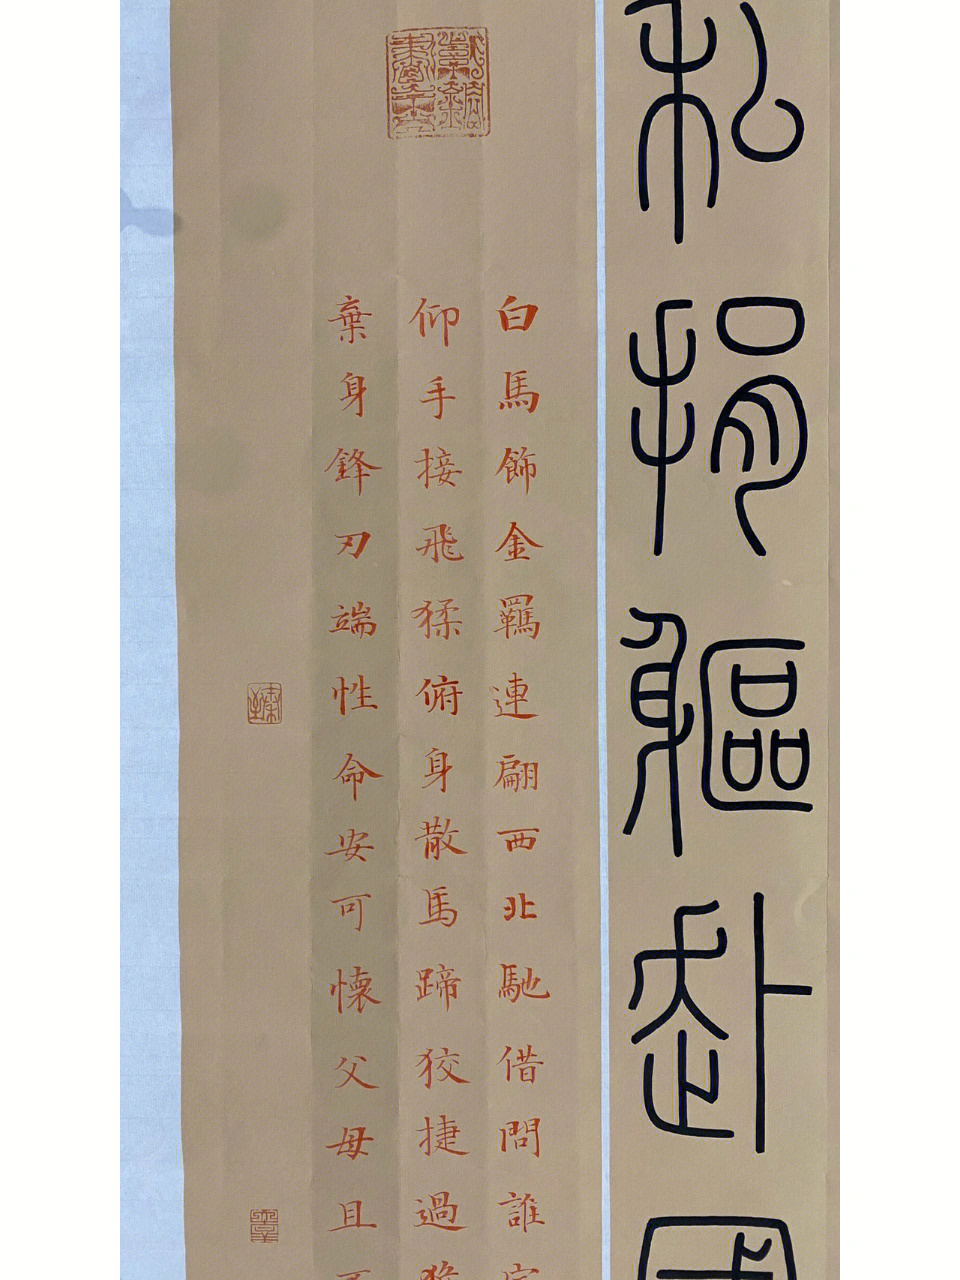 私捐軀赴國
白馬飾金羈連翩西北馳借問誰家
仰手接飛猱俯身散馬蹄狡捷過猴
棄身鋒刃端性命安可懷父母且不